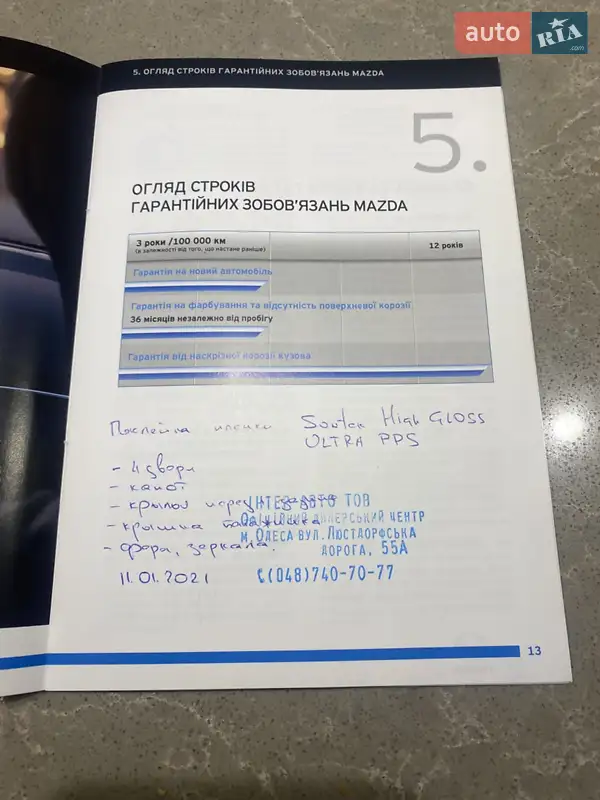 auto RIA .com
5. ОГЛЯД СТРОКІВ ГАРАНТІЙНИХ ЗОБОВ'ЯЗАНЬ MAZDA
5.
ОГЛЯД СТРОКІВ
ГАРАНТІЙНИХ ЗОБОВ'ЯЗАНЬ MAZDA
3 роки /100 000 км
(в залежності від того, що настане раніше)
12 років
Гарантія на новий автомобіль
Гарантія на фарбування та відсутність поверхневої корозії
36 місяців незалежно від пробігу
Гарантія від наскрізної корозії кузова
Поклейка пленки High GLOSS
ULTRA PPS
- 4 двери
- капот
- крылья перед
- крышка багажника
- фары, зеркала.
11.01.2021
АВТО ТОВ
ДИЛЕРСЬКИЙ ЦЕНТР
м. ОДЕСА ВУЛ. ЛЮСТДОРФСЬКА
ДОРОГА, 55А
(048)740-70-77
13